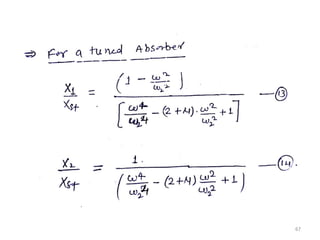 ⇒ For a tuned Absorber
X₁/Xst = (1 - ω²/ω₂²) / [ω⁴/ω₂⁴ - (2+μ)·ω²/ω₂² + 1] —⑬
X₂/Xst = 1. / (ω⁴/ω₂⁴ - (2+μ) ω²/ω₂² + 1) —⑭.
47